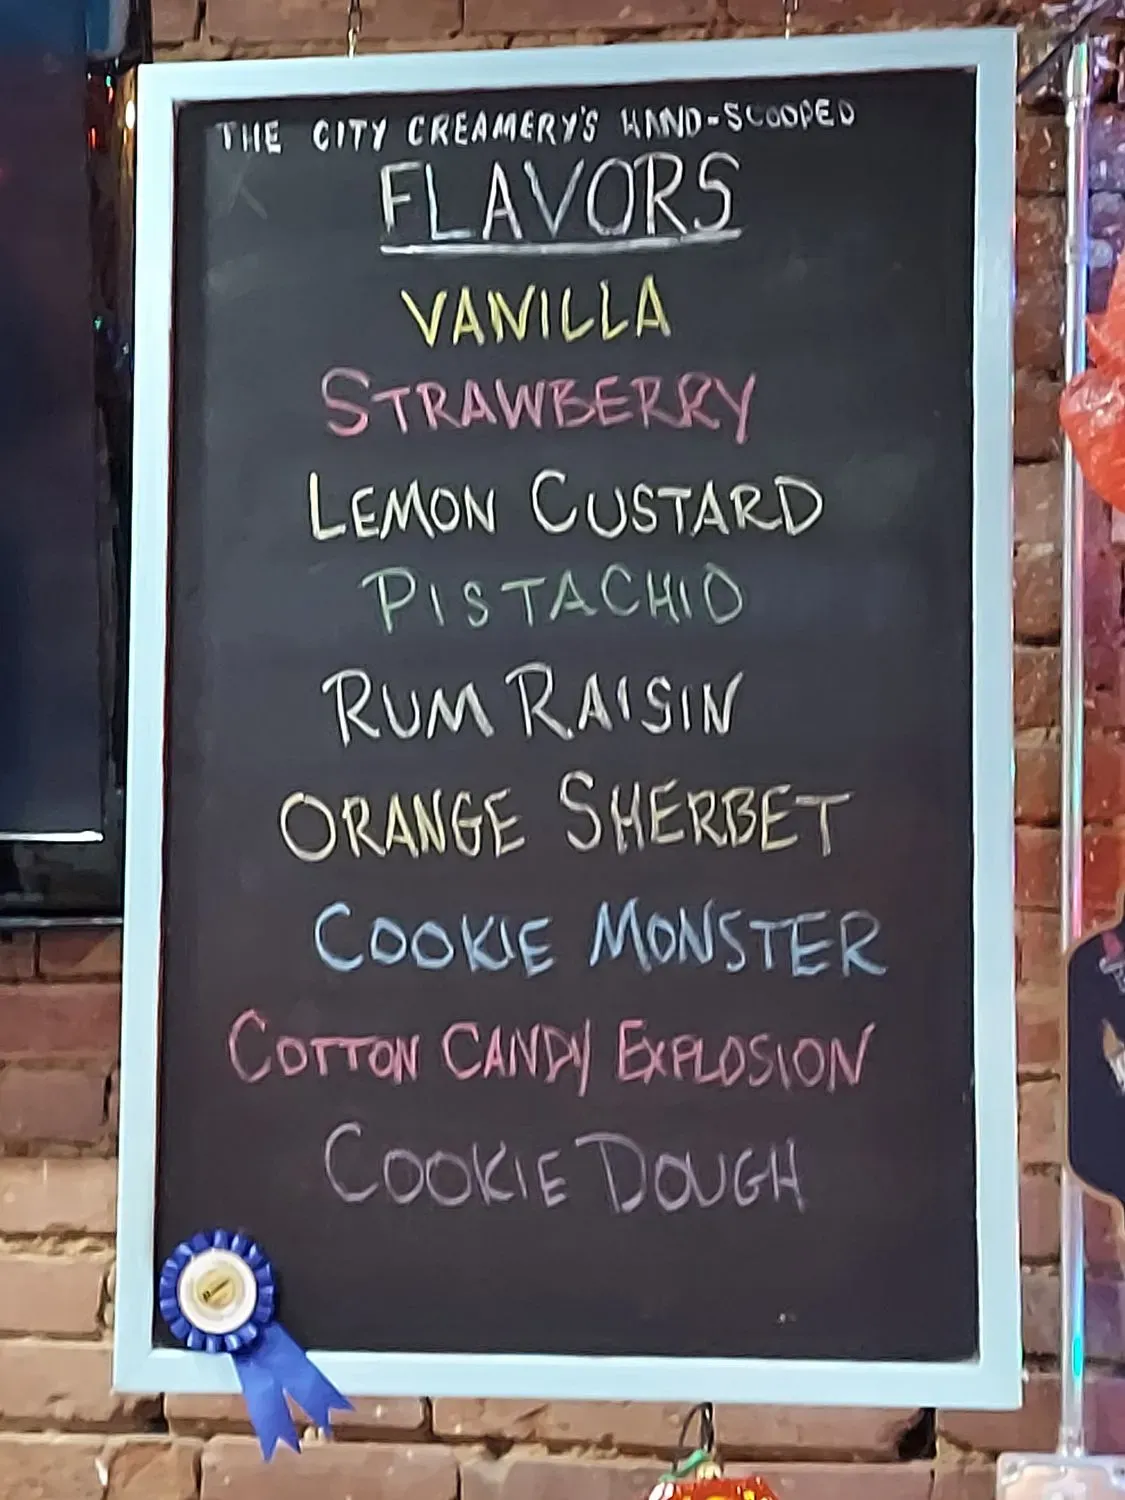 THE CITY CREAMERY'S HAND-SCOOPED
FLAVORS
VANILLA
STRAWBERRY
LEMON CUSTARD
PISTACHIO
RUM RAISIN
ORANGE SHERBET
COOKIE MONSTER
COTTON CANDY EXPLOSION
COOKIE DOUGH